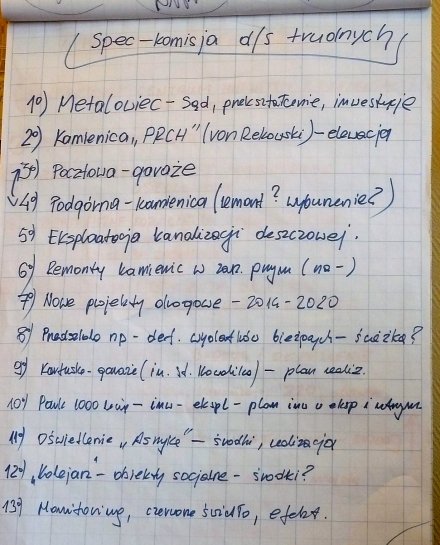 Spec-komisja d/s trudnych
1°) Metalowiec - Sąd, przekształcenie, inwestycje
2°) Kamienica „PRCH" (von Rekowski) - elewacja
3°) Pocztowa - garaże
4°) Podgórna - kamienica (remont? wyburzenie?)
5°) Eksploatacja kanalizacji deszczowej.
6°) Remonty kamienic w zarz. (na -)
7°) Nowe projekty drogowe - 2014 - 2020
8°) np - def. wydatków bieżących - ścieżka?
9°) Kartuska - garaże (in. J. Kowalika) - plan realiz.
10°) Park 1000 lecia - inw - ekspl - plan inw i
11°) Oświetlenie „Asnyka" - środki, realizacja
12°) „Kolejarz" - obiekty socjalne - środki?
13°) Monitoring, czerwone światło, efekt.